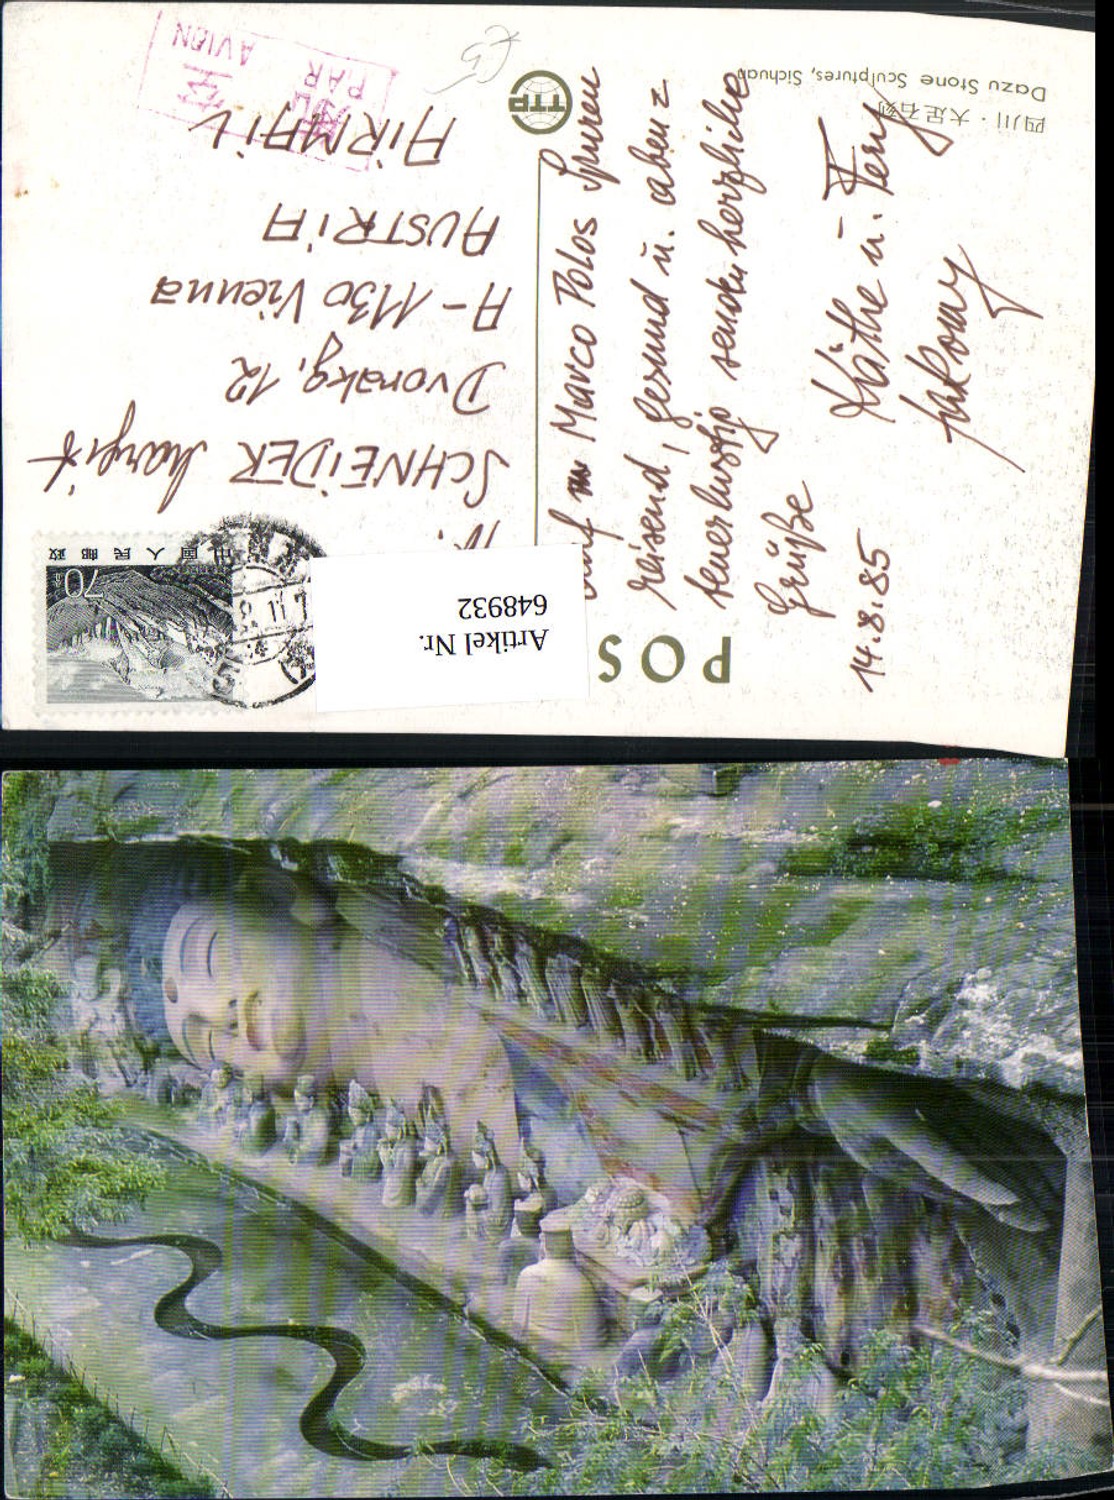 四川·大足石刻
Dazu Stone Sculptures, Sichuan
TTP
POS
Artikel Nr.
648932
中国人民邮政
70分
PAR
AVION
auf Marco Polos Spuren
reisend, gesund u.
senden herzliche
Grüße
Käthe u. Ferry
14.8.85
SCHNEIDER Margit
Dvorakg. 12
A-1130 Vienna
AUSTRIA
AIRMAIL